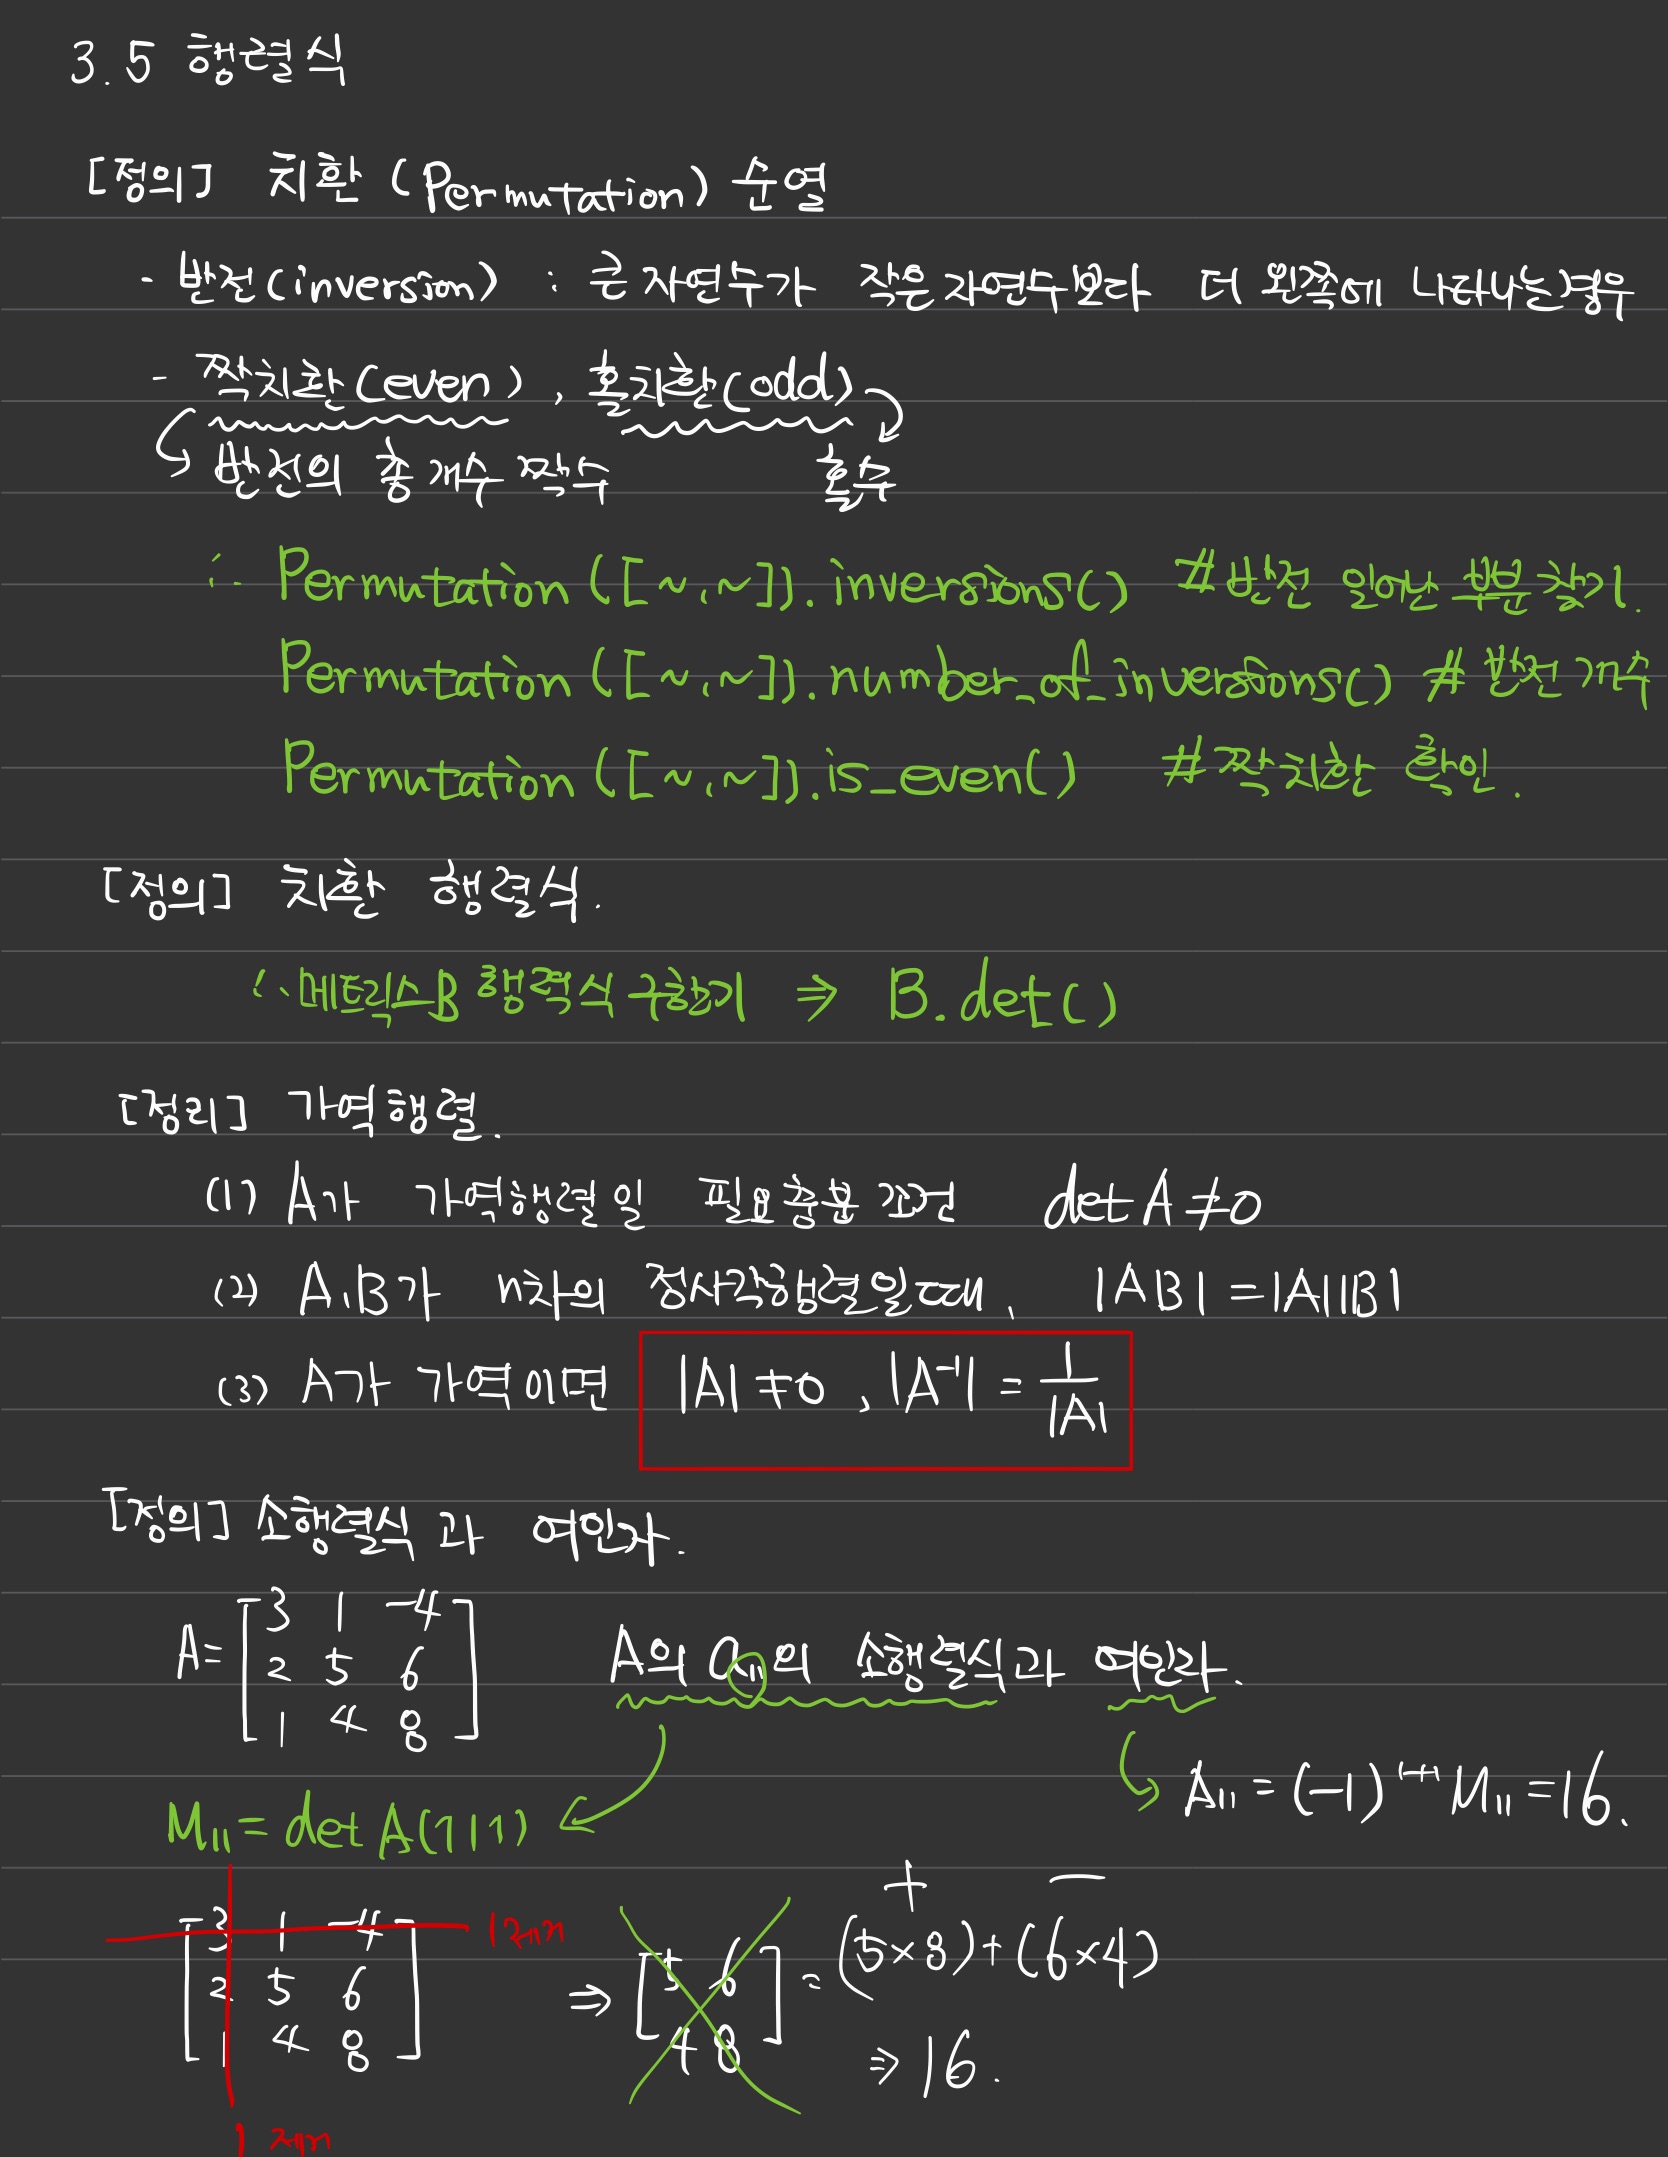 3.5 행렬식
[정의] 치환 (Permutation) 순열
- 반전(inversion) : 큰 자연수가 작은 자연수보다 더 왼쪽에 나타나는 경우
- 짝치환(even), 홀치환(odd)
↳ 반전의 총 개수 짝수 홀수
∴ Permutation([~,~]).inversions() #반전 일어난 부분 찾기.
Permutation([~,~]).number_of_inversions() #반전 개수
Permutation([~,~]).is_even() #짝치환 확인.
[정의] 치환 행렬식.
∴ 메트릭스B 행렬식 구하기 ⇒ B.det()
[정리] 가역행렬.
(1) A가 가역행렬일 필요충분 조건 det A ≠ 0
(2) A,B가 n차의 정사각행렬일때, |AB| = |A||B|
(3) A가 가역이면 |A| ≠ 0 , |A⁻¹| = 1/|A|
[정의] 소행렬식과 여인자.
A = [3 1 -4
2 5 6
1 4 8]
A의 a₁₁의 소행렬식과 여인자.
A₁₁ = (-1)¹⁺¹ M₁₁ = 16.
M₁₁ = det A(1|1)
[3 1 -4 1제거
2 5 6
1 4 8]
1 제거
⇒ [5 6
4 8] = (5×8) + (6×4)
+ −
⇒ 16.